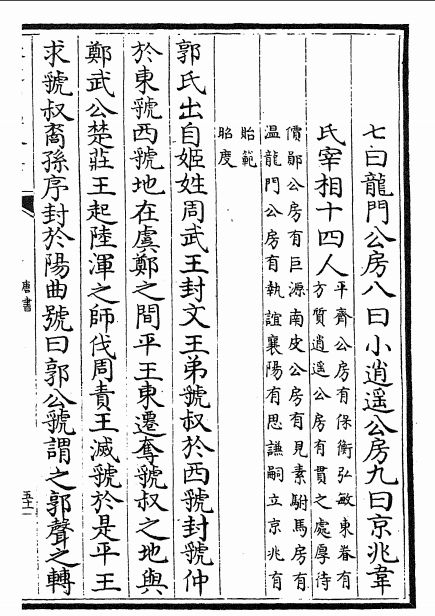 七曰龍門公房八曰小逍遥公房九曰京兆韋
氏宰相十四人平齊公房有保衡弘敏東眷有
方質逍遥公房有貫之處厚待
價鄖公房有巨源南皮公房有見素駙馬房有
温龍門公房有執誼襄陽有思謙嗣立京兆有
貽範
昭度
郭氏出自姬姓周武王封文王弟虢叔於西虢封虢仲
於東虢西虢地在虞鄭之間平王東遷奪虢叔之地與
鄭武公楚莊王起陸渾之師伐周責王滅虢於是平王
求虢叔裔孫序封於陽曲號曰郭公虢謂之郭聲之轉
唐書
五十二